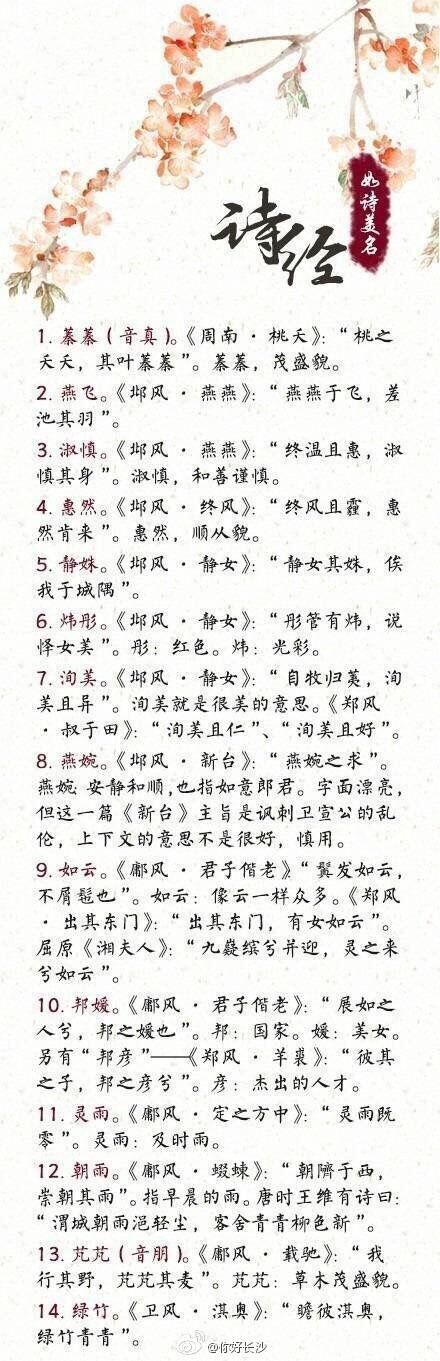 诗经
如诗美名
1. 蓁蓁（音真）。《周南·桃夭》：“桃之
夭夭，其叶蓁蓁”。蓁蓁，茂盛貌。
2. 燕飞。《邶风·燕燕》：“燕燕于飞，差
池其羽”。
3. 淑慎。《邶风·燕燕》：“终温且惠，淑
慎其身”。淑慎，和善谨慎。
4. 惠然。《邶风·终风》：“终风且霾，惠
然肯来”。惠然，顺从貌。
5. 静姝。《邶风·静女》：“静女其姝，俟
我于城隅”。
6. 炜彤。《邶风·静女》：“彤管有炜，说
怿女美”。彤：红色。炜：光彩。
7. 洵美。《邶风·静女》：“自牧归荑，洵
美且异”。洵美就是很美的意思。《郑风
·叔于田》：“洵美且仁”、“洵美且好”。
8. 燕婉。《邶风·新台》：“燕婉之求”。
燕婉：安静和顺，也指如意郎君。字面漂亮，
但这一篇《新台》主旨是讽刺卫宣公的乱
伦，上下文的意思不是很好，慎用。
9. 如云。《鄘风·君子偕老》“鬒发如云，
不屑髢也”。如云：像云一样众多。《郑风
·出其东门》：“出其东门，有女如云”。
屈原《湘夫人》：“九嶷缤兮并迎，灵之来
兮如云”。
10. 邦媛。《鄘风·君子偕老》：“展如之
人兮，邦之媛也”。邦：国家。媛：美女。
另有“邦彦”——《郑风·羊裘》：“彼其
之子，邦之彦兮”。彦：杰出的人才。
11. 灵雨。《鄘风·定之方中》：“灵雨既
零”。灵雨：及时雨。
12. 朝雨。《鄘风·蝃蝀》：“朝隮于西，
崇朝其雨”。指早晨的雨。唐时王维有诗曰：
“渭城朝雨浥轻尘，客舍青青柳色新”。
13. 芃芃（音朋）。《鄘风·载驰》：“我
行其野，芃芃其麦”。芃芃：草木茂盛貌。
14. 绿竹。《卫风·淇奥》：“瞻彼淇奥，
绿竹青青”。
@你好长沙